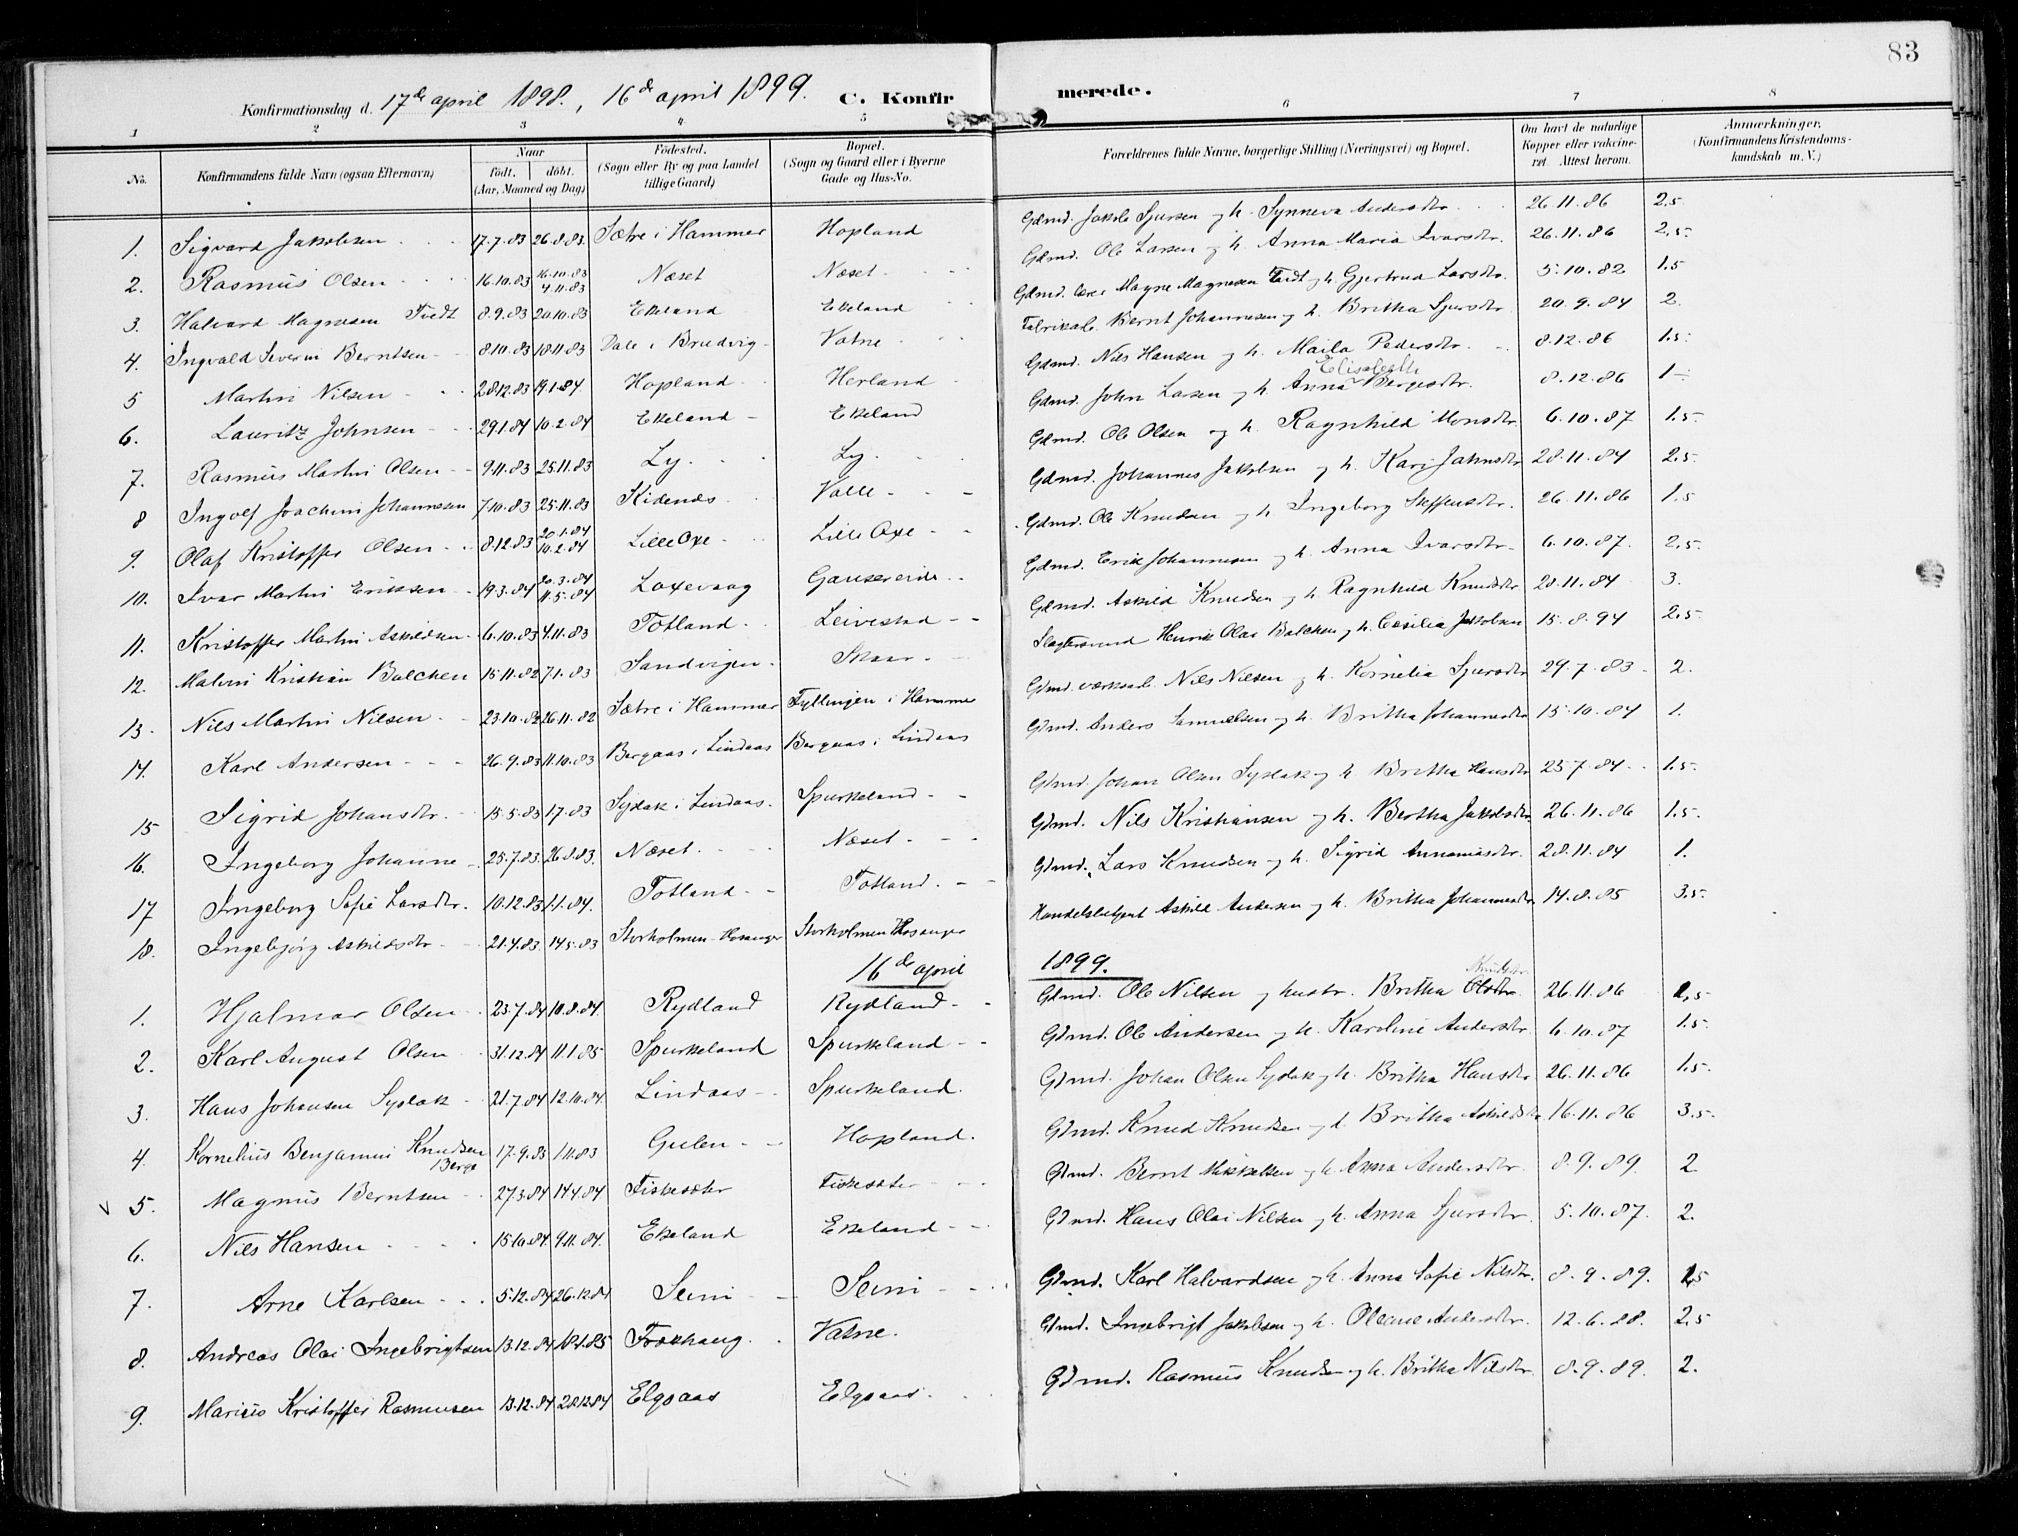 83
Konfirmationsdag d. 17de april 1898, 16de april 1899. C. Konfirmerede.
1 2 3 4 5 6 7 8
No. Konfirmandens fulde Navn (ogsaa Efternavn) Naar födt. döbt. (Aar, Maaned og Dag) Födested. (Sogn eller By og paa Landet tillige Gaard) Bopæl. (Sogn og Gaard eller i Byerne Gade og Hus-No. Forældrenes fulde Navne, borgerlige Stilling (Næringsvei) og Bopæl. Om havt de naturlige Kopper eller vakcineret. Attest herom. Anmærkninger. (Konfirmandens Kristendomskundskab m. V.)
1. Sigvard Jakobsen 17.7.83 26.8.83. Sætre i Hammer Hopland Gdmd. Jakob Sjursen og h. Synneva Andersdtr. 26.11.86 2,5
2. Rasmus Olsen 16.10.83 16.10.83 4.11.83 Næset Næset Gdmd. Ole Larsen og h. Anna Maria Ivarsdtr. 26.11.86 2,5
3. Halvard Magnesen Tvedt 8.9.83 20.10.83 Ekeland Ekeland Gdmd. lærer Magne Magnesen Tvedt og h. Gjertrud Larsdtr. 5.10.82 1.5
4. Ingvald Severin Berntsen 8.10.83 18.11.83 Dale i Bruvig Vatne Fabrikarb. Bernt Johannesen og h. Britha Sjursdtr. 20.9.84 2.
5 Martin Nilsen 28.12.83 19.1.84. Hopland Herland Gdmd. Nils Hansen og h. Maila Pedersdtr. 8.12.86 1.5
6. Lauritz Johnsen 29.1.84 10.2.84 Ekeland Ekeland Gdmd. John Larsen og h. Anna Elisabeth Bergesdtr. 8.12.86 1
7. Rasmus Martin Olsen 9.11.83 25.11.83 Ly. Ly. Gdmd. Ole Olsen og h. Ragnhild Monsdtr. 6.10.87 1.5
8 Ingolf Joachim Johannesen 7.10.83 25.11.83 Kidenæs Valle Gdmd. Johannes Jakobsen og h. Kari Jahnsdtr 28.11.84 2.5
9. Olaf Kristoffer Olsen 8.12.83 20.1.84 10.2.84 Lille Oxe Lille Oxe Gdmd. Ole Knudsen og h. Ingeborg Steffensdtr. 26.11.86 1.5
10. Ivar Martin Eriksen 19.3.84 20.3.84 11.5.84 Loxevaag Gausereide Gdmd. Erik Johannesen og h. Anna Ivarsdtr. 6.10.87. 2.5.
11. Kristoffer Martin Askildsen 6.10.83 4.11.83 Totland Leivestad Gdmd. Askild Knudsen og h. Ragnhild Knudsdtr 28.11.84 3.
12. Malvin Kristian Balchen 15.11.82 7.1.83 Sandvigen Skaar Slagtersvend Henrik Olai Balchen og h. Cecilia Jakobsen 15.8.94 2,5
13. Nils Martin Nilsen 23.10.82 26.11.82 Sætre i Hammer Fyllingen i Hammer Gdmd. værksarb. Nils Nilsen og h. Kornelia Sjursdtr 29.7.83 2.
14. Karl Andersen 26.9.83 11.10.83 Bergaas i Lindaas Bergaas i Lindaas Gdmd. Anders Samuelsen og h. Britha Johannesdtr 15.10.84 1.
15 Sigrid Johansdtr. 15.5.83 1.7.83 Syslak i Lindaas. Spurkeland Gdmd Johan Olsen Syslak og h. Britha Hansdtr 25.7.84 1.5
16. Ingeborg Johanne 25.7.83. 26.8.83. Næset. Næset Gdmd. Nils Kristiansen og h. Bertha Jakobsdtr. 26.11.86 1.5
17 Ingeborg Sofie Larsdtr. 10.12.83 1.1.84. Totland Totland. Gdmd. Lars Knudsen og h. Sigrid Annaniasdtr. 28.11.84 1.
18. Ingebjørg Askildsdtr 21.4.83. 14.5.83 Storholmen Hosanger Storholmen Hosanger Handelsbetjent Askild Andersen og h. Britha Johannesdtr 14.8.85 3.5
16de april 1899.
1. Hjalmar Olsen 23.7.84 10.8.84 Rydland Rydland Gdmd. Ole Nilsen og hustr. Britha Olsdtr. Knudsdtr 26.11.86 2,5
2. Karl August Olsen 31.12.84 11.1.85 Spurkeland Spurkeland Gdmd. Ole Andersen og h. Karoline Andersdtr 6.10.87 1.5
3. Hans Johansen Syslak 21.7.84 12.10.84. Lindaas Spurkeland. Gdmd. Johan Olsen Syslak og h. Britha Hansdtr 26.11.86 1.5
4. Kornelius Benjamin Knudsen Berge 17.9.83 1.11.83 Gulen Hopland. Gdmd. Knud Knudsen og h. Britha Askildsdtr 16.11.86 3.5
V 5. Magnus Berntsen 27.3.84 14.4.84. Fiskesæter Fiskesæter Gdmd. Bernt Mikkelsen og h. Anna Andersdtr. 8.9.89. 2
6. Nils Hansen 15.10.84 9.11.84. Ekeland Ekeland Gdmd. Hans Olai Nilsen og h. Anna Sjursdtr. 5.10.87. 2.
7. Arne Karlsen 5.12.84 26.12.84 Seim Seim Gdmd. Karl Halvardsen og h. Anna Sofie Nilsdtr. 8.9.89. 1,5
8. Andreas Olai Ingebrigtsen 13.12.84 18.1.85 Troshaug. Vatne. Gdmd. Ingebrigt Jakobsen og h. Oleane Andersdtr. 12.6.88. 2,5
9. Marius Kristoffer Rasmusen 13.12.84 28.12.84 Elgsaas Elgsaas Gdmd. Rasmus Knudsen og h. Britha Nilsdtr. 8.9.89. 2.